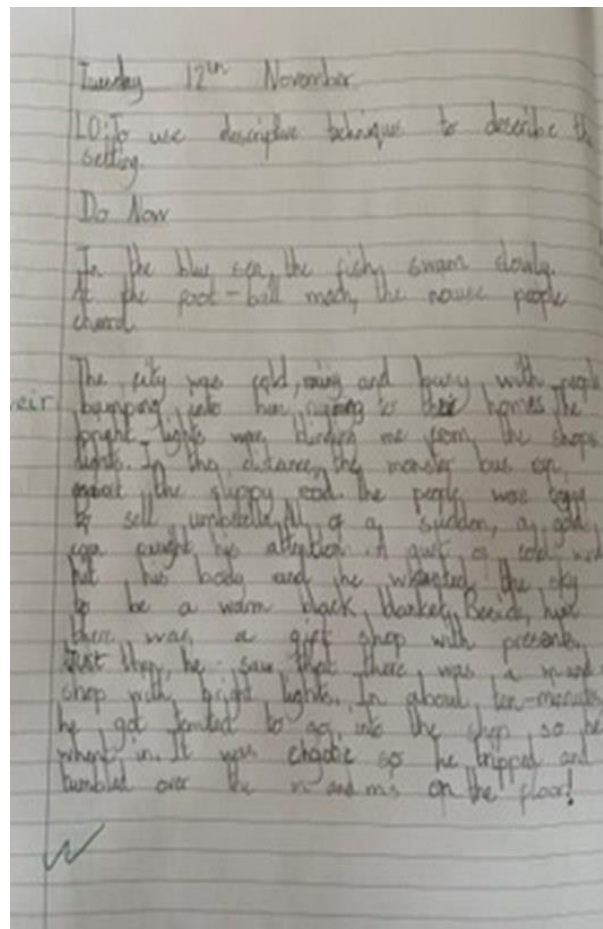 Tuesday 12th November
LO: To use descriptive techniques to describe the
setting.
Do Now
In the blue sea, the fishy swam slowly.
At the foot-ball mach, the people
The city was cold, and busy with people
eir bumping into him to their homes. The
bright lights was blinding me from the shops
lights. In the distance, the monster bus
the slippy road. The people were
to sell umbrella. All of a sudden, a gold,
caught his attention. A gust of cold wind
hit his body and he wanted the sky
to be a warm black blanket. Beside, him
there was a gift shop with presents.
Just then, he saw that there was a m-and-
shop with bright lights. In about ten-menuts
he got temted to go into the shop so he
whent in. It was chaotic so he tripped and
tumbled over the m and ms on the floor!